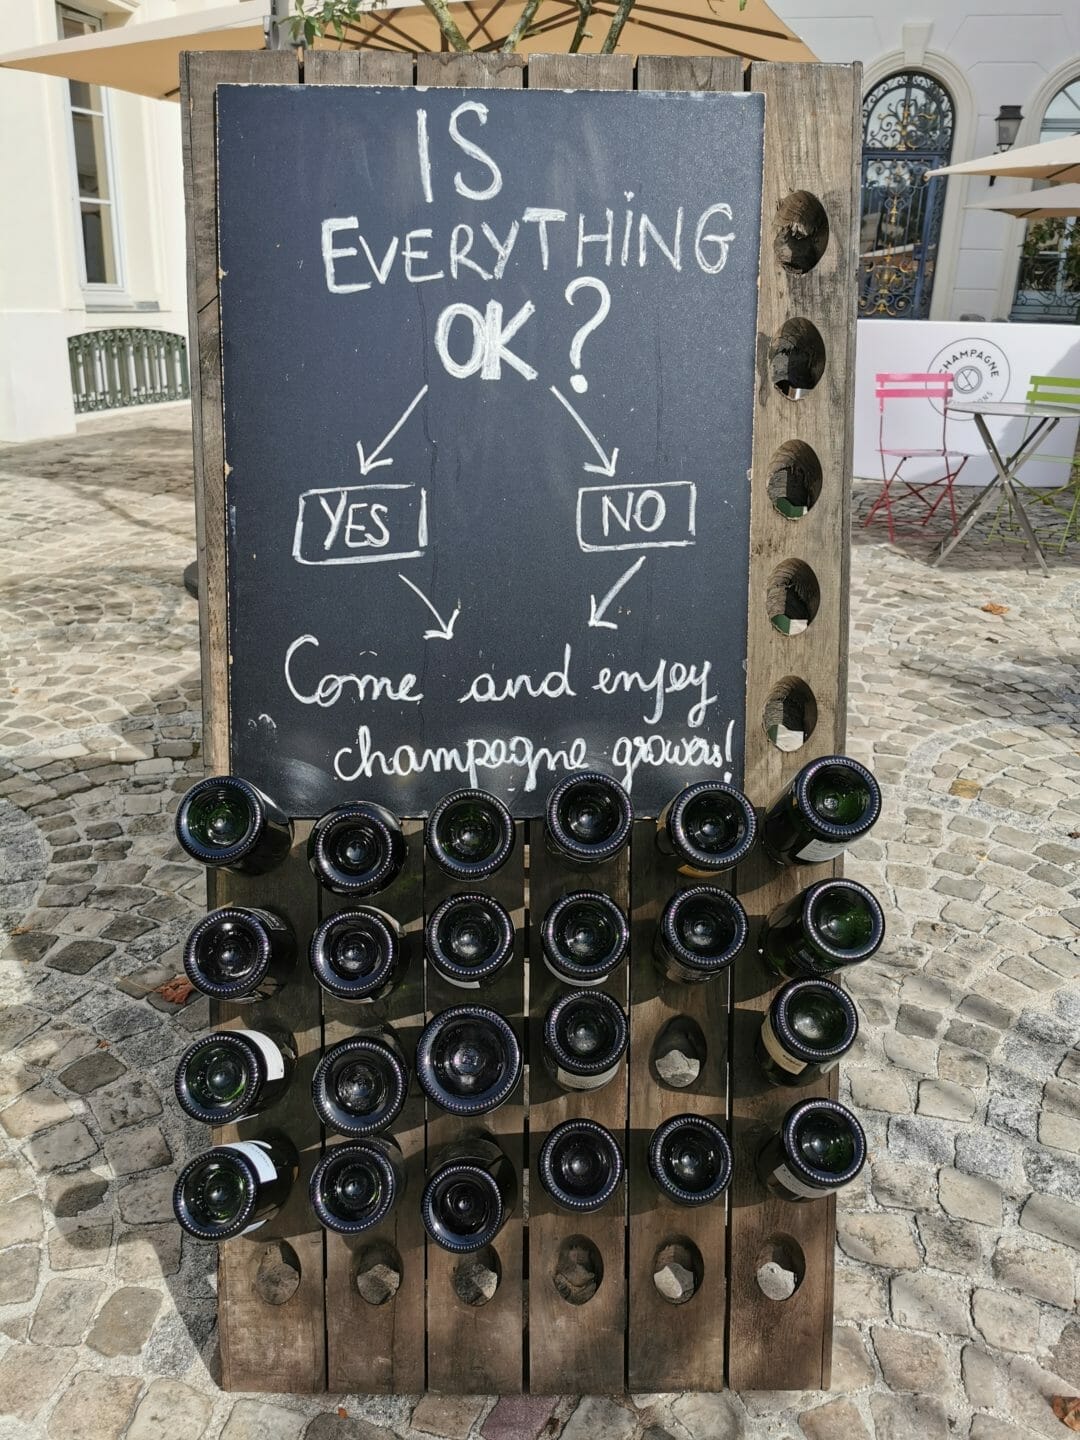 IS
EVERYTHING
OK?
YES NO
Come and enjoy
champagne growers!
CHAMPAGNE